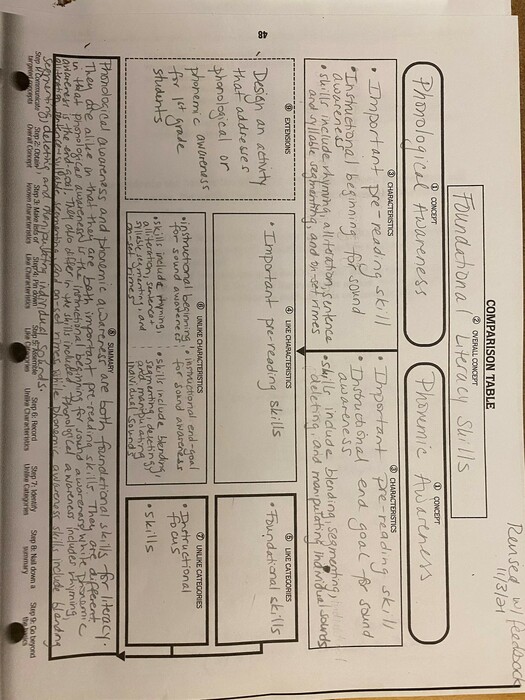 Revised w/ feedback
11/3/21
COMPARISON TABLE
② OVERALL CONCEPT
Foundational Literacy Skills
① CONCEPT
Phonological Awareness
① CONCEPT
Phonemic Awareness
③ CHARACTERISTICS
• Important pre-reading skill
• Instructional beginning for sound
awareness
• skills include rhyming, alliteration, sentence
and syllable segmenting, and on-set rimes
③ CHARACTERISTICS
• Important pre-reading skill
• Instructional end goal for sound
awareness
• skills include blending, segmenting,
deleting, and manipulating individual sounds
④ LIKE CHARACTERISTICS
• Important pre-reading skills
⑤ LIKE CATEGORIES
• Foundational skills
⑥ UNLIKE CHARACTERISTICS
• instructional beginning
for sound awareness
• skills include rhyming,
alliteration, sentence
syllable segmenting, and
onset rimes
• instructional end-goal
for sound awareness
• skills include blending,
segmenting, deleting,
and manipulating
individual sounds
⑦ UNLIKE CATEGORIES
• Instructional
focus
• skills
⑨ EXTENSIONS
Design an activity
that addresses
phonological or
phonemic awareness
for 1st grade
students
⑧ SUMMARY
Phonological awareness and phonemic awareness are both foundational skills for literacy.
They are alike in that they are both important pre-reading skills. They are different
in that phonological awareness is the instructional beginning for sound awareness while phonemic
awareness is the end-goal. They also differ in the skills included. Phonological awareness includes rhyming
alliteration, sentence syllable segmenting, and onset rimes while phonemic awareness skills include blending
segmenting, deleting and manipulating individual sounds.
Step 1: Communicate
targeted concepts
Step 2: Obtain
Overall Concept
Step 3: Make lists of
known characteristics
Step 4: Pin down
Like Characteristics
Step 5: Assemble
Like Categories
Step 6: Record
Unlike Characteristics
Step 7: Identify
Unlike Categories
Step 8: Nail down a
summary
Step 9: Go beyond
the basics
48